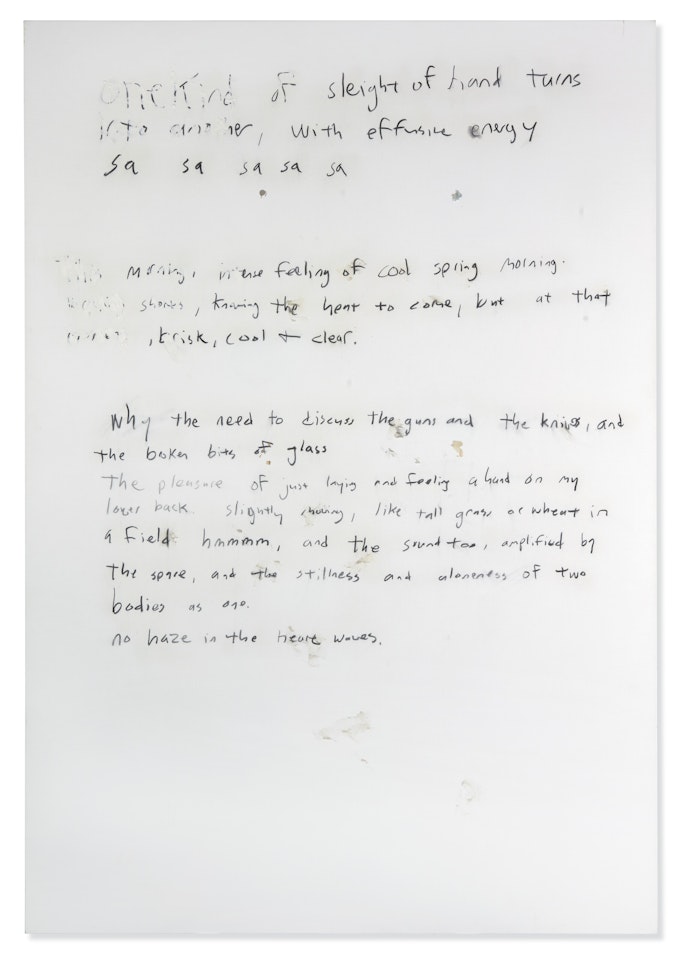 one kind of sleight of hand turns
into another, with effusive energy
sa sa sa sa sa
This morning, feeling of cool spring morning.
shores, knowing the heat to come, but at that
, brisk, cool + clear.
Why the need to discuss the guns and the knives, and
the boken bits of glass
The pleasure of just laying and feeling a hand on my
lower back slightly, like tall grass or wheat in
a field hmmmm, and the sound too, amplified by
the space, and the stillness and aloneness of two
bodies as one.
no haze in the heart waves.